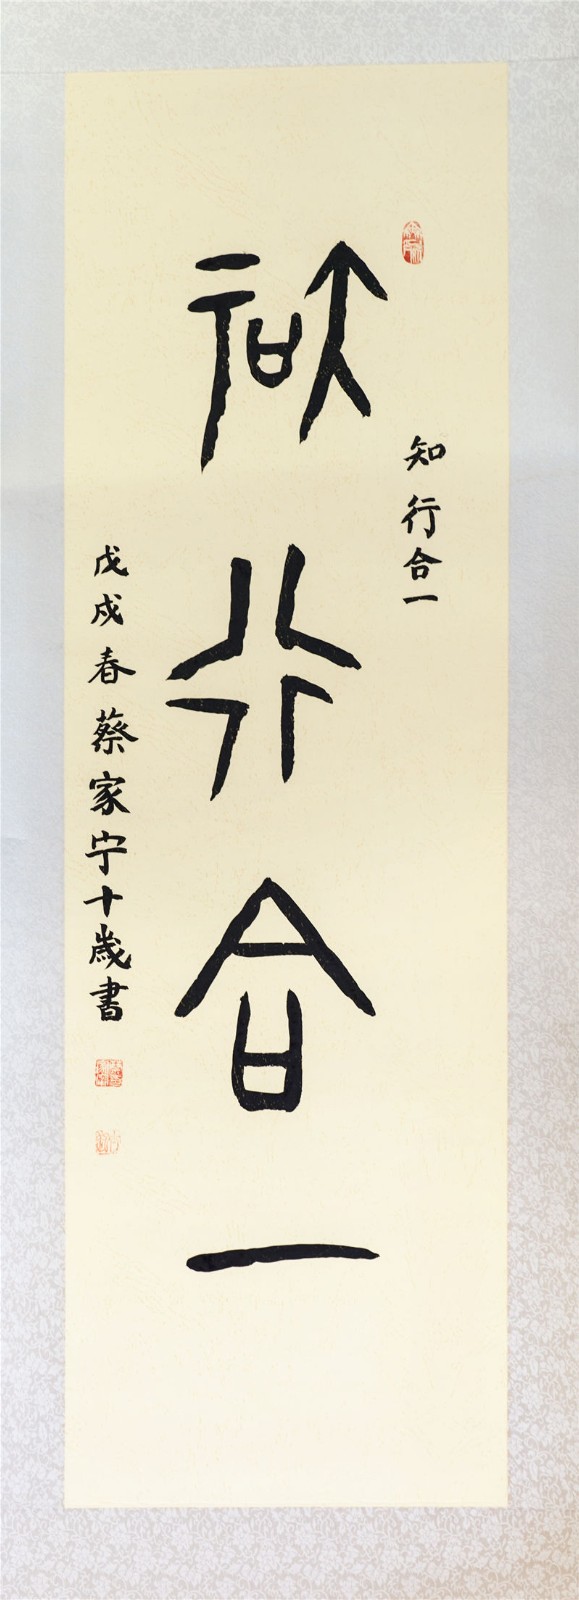 知行合一
知行合一
戊戌春蔡家宁十歲書